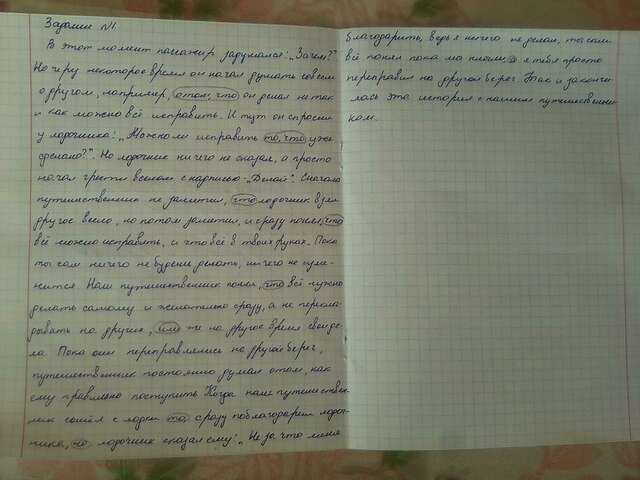 Задание №1
В этот момент пассажир задумался: „Зачем?"
Но через некоторое время он начал думать совсем
о другом, например, о том, что он делал не так
и как можно всё исправить. И тут он спросил
у лодочника: „Можно ли исправить то, что уже
сделано?". Но лодочник ничего не сказал, а просто
начал грести веслом с надписью - „Делай". Сначала
путешественник не заметил, что лодочник взял
другое весло, но потом заметил, и сразу понял, что
всё можно исправить, и что всё в твоих руках. Пока
ты сам ничего не будешь делать, ничего не изме-
нится. Наш путешественник понял, что всё нужно
делать самому и желательно сразу, а не перекла-
дывать на других, или же на другое время свои де-
ла. Пока они переправлялись на другой берег,
путешественник постоянно думал о том, как
ему правильно поступить. Когда наш путешествен-
ник сошёл с лодки то сразу поблагодарил лодоч-
ника, но лодочник сказал ему: „Не за что меня
благодарить, ведь я ничего не делал, ты сам
всё понял пока мы плыли, а я тебя просто
переправил на другой берег. Так и закончи-
лась эта история с нашим путешественни-
ком.